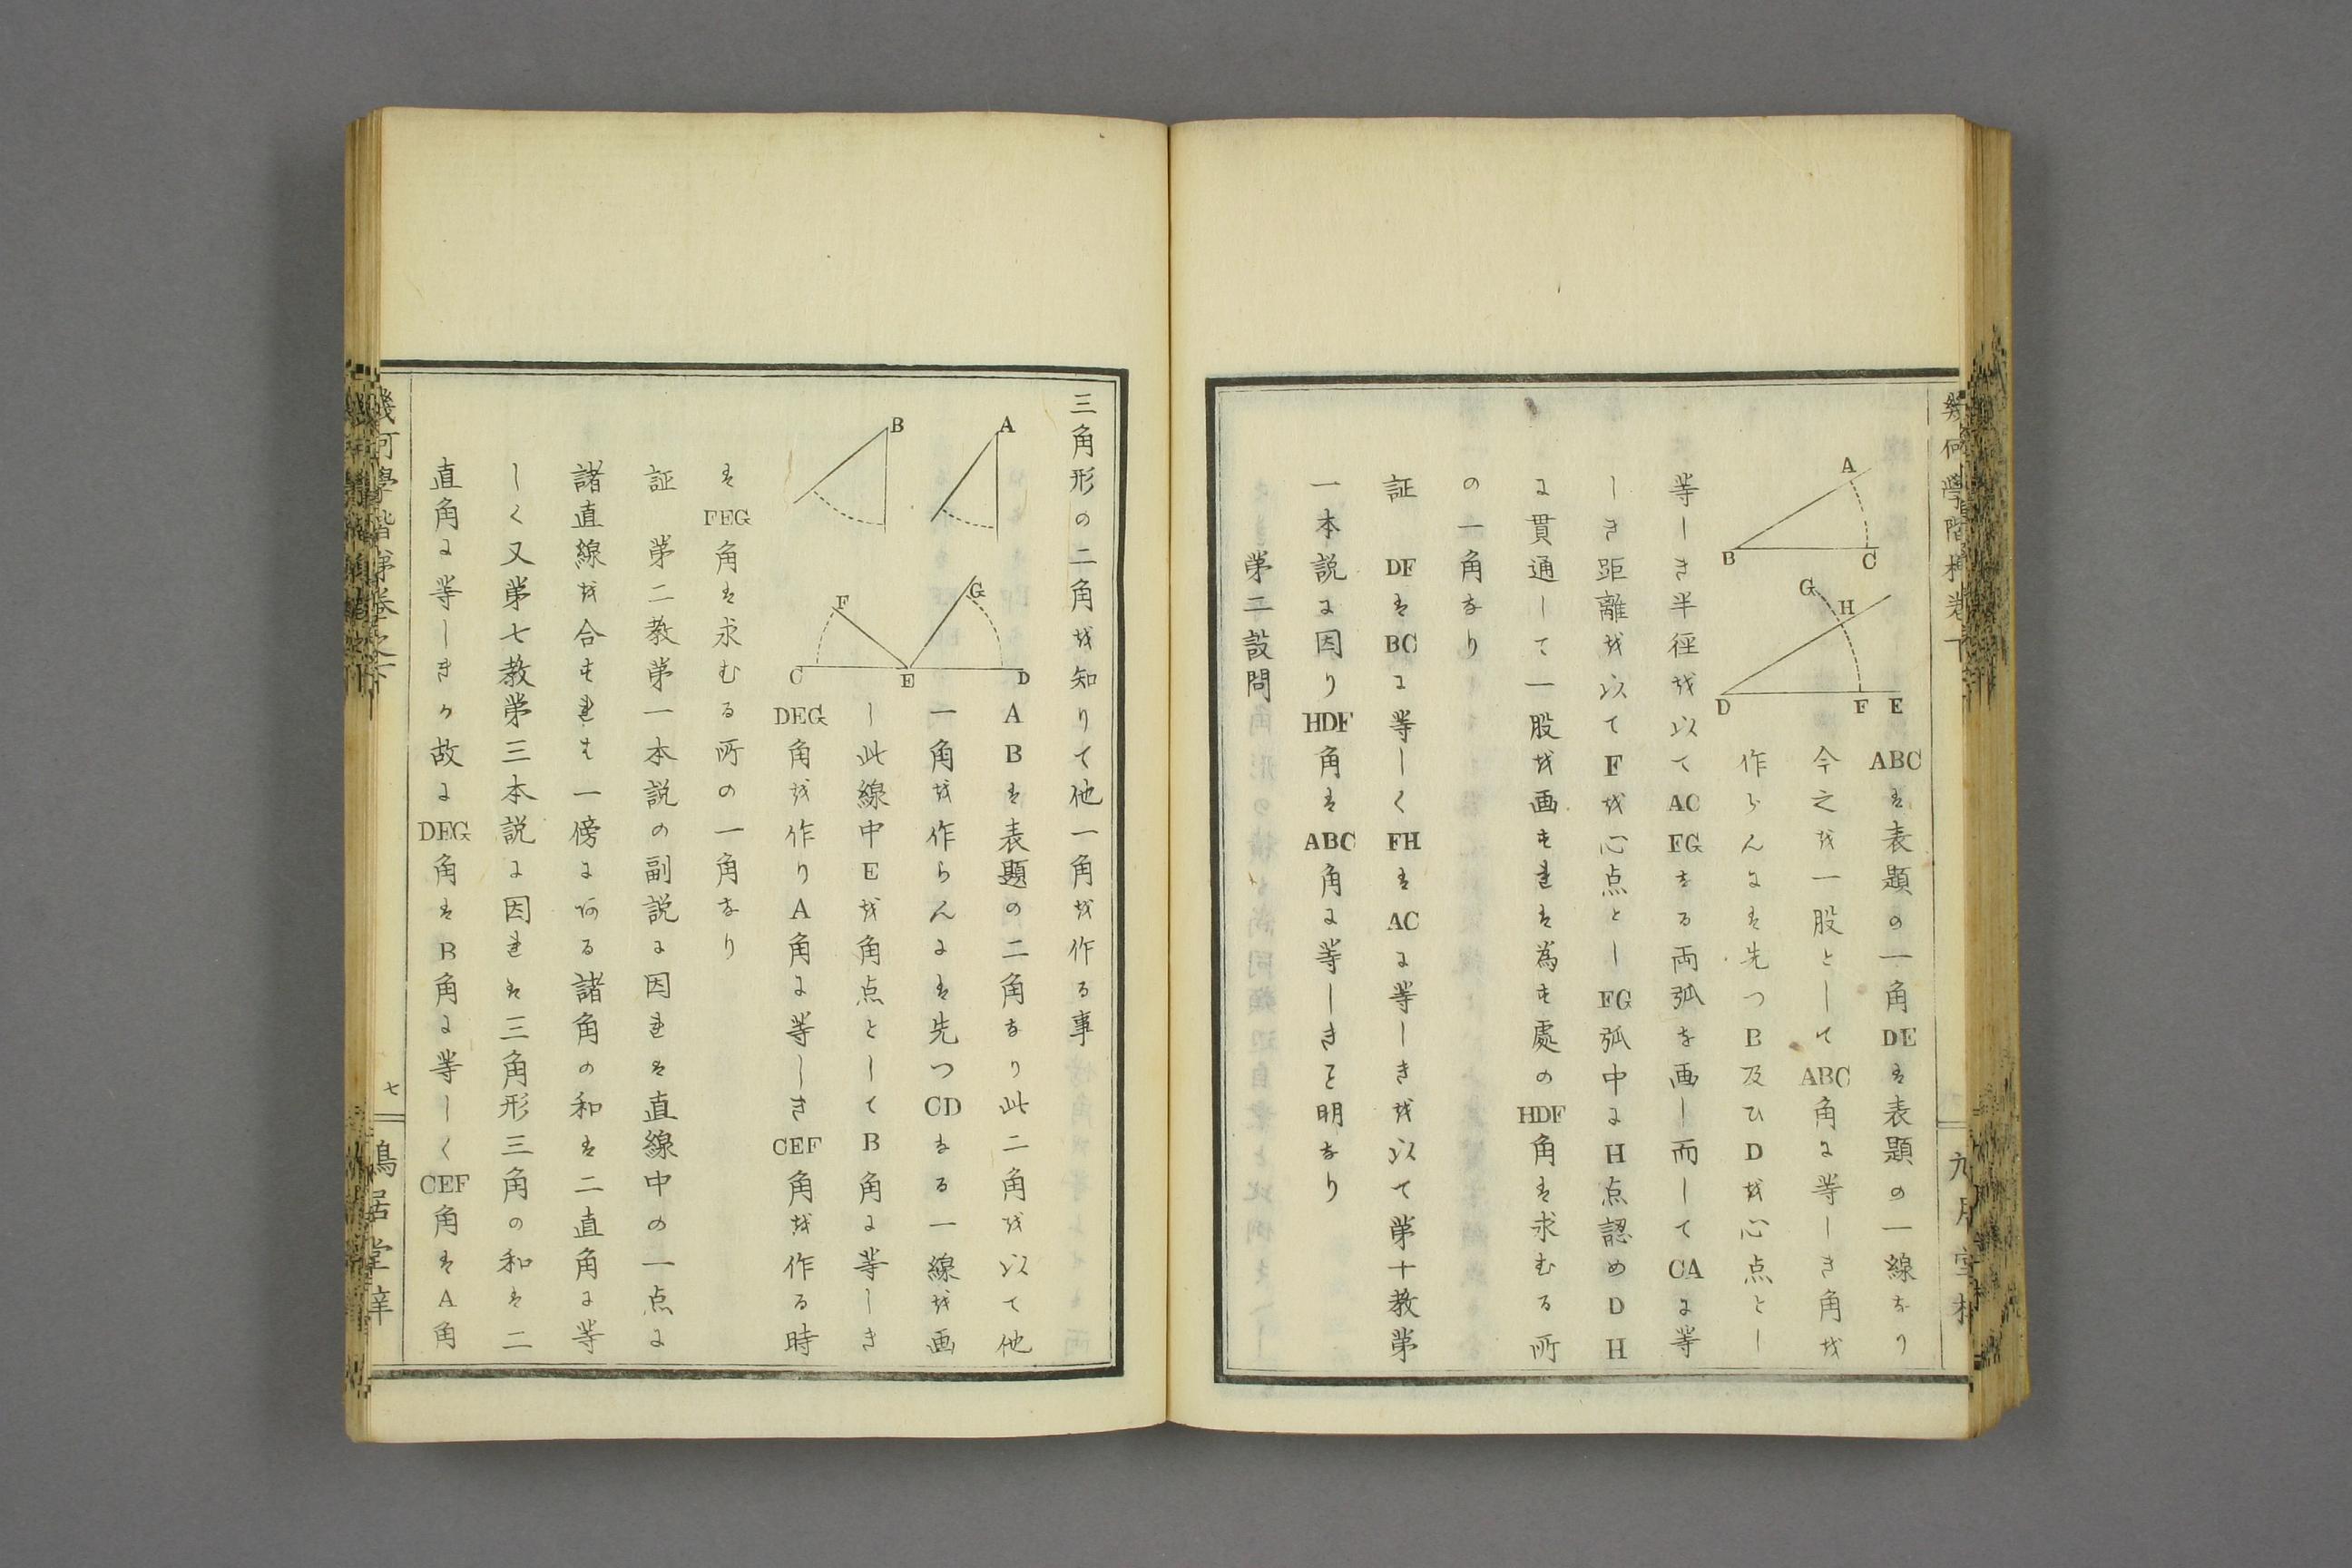 ABCは表題の一角DEは表題の一線なり
今之を一股としてABC角に等しき角を
作らんには先つB及ひDを心点とし
等しき半径を以てAC FGなる両弧を画し而してCAに等
しき距離を以てFを心点としFG弧中にH点認めDH
に貫通して一股を画すれは為す處のHDF角は求むる所
の一角なり
証 DFはBCに等しくFHはACに等しきを以て第十教第
一本説に因りHDF角はABC角に等しきこと明なり
第二設問
A
B
C
G
H
D
F
E
三角形の二角を知りて他一角を作る事
ABは表題の二角なり此二角を以て他
一角を作らんには先つCDなる一線を画
し此線中Eを角点としてB角に等しき
DEG角を作りA角に等しきCEF角を作る時
はFEG角は求むる所の一角なり
証 第二教第一本説の副説に因れは直線中の一点に
諸直線を合すれは一傍にある諸角の和は二直角に等
しく又第七教第三本説に因れは三角形三角の和は二
直角に等しきか故にDEG角はB角に等しくCEF角はA角
A
B
G
F
C
E
D
幾何學階梯卷之下
七